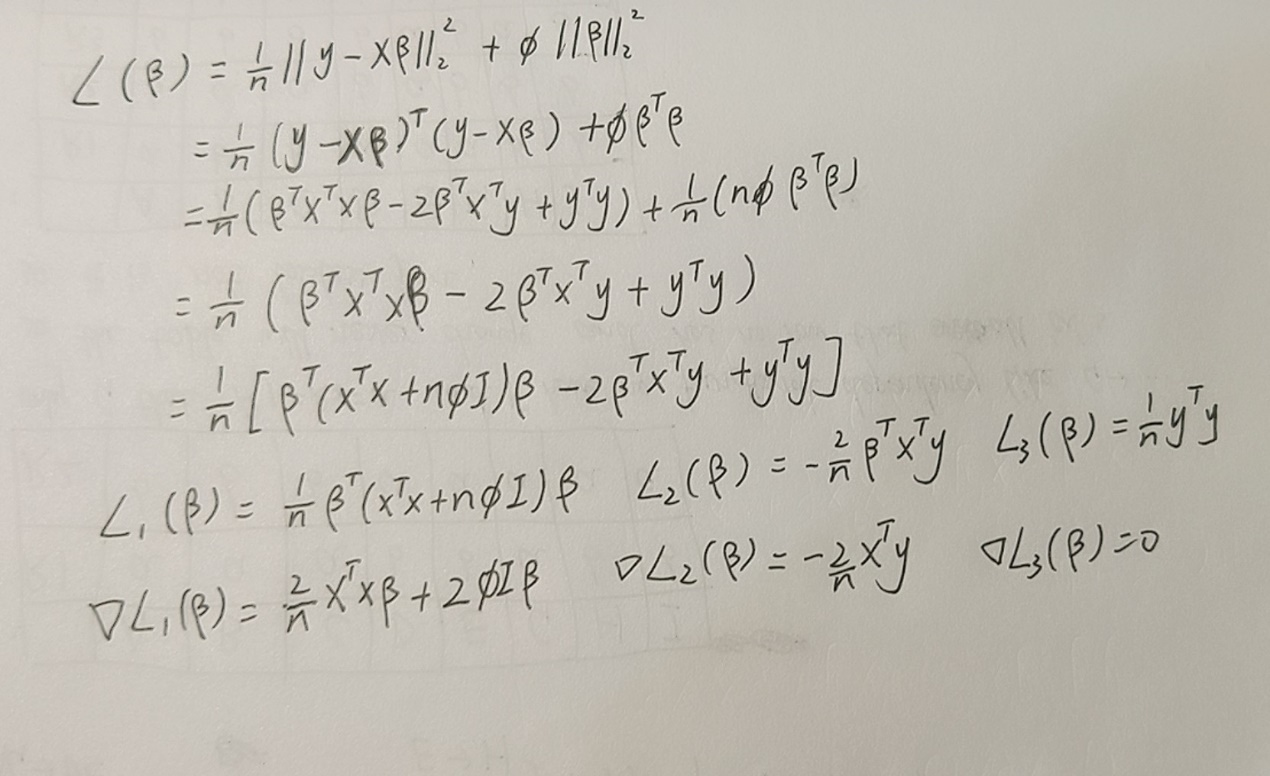 L(β) = 1/n ||y - Xβ||₂² + φ ||β||₂²
= 1/n (y - Xβ)ᵀ(y - Xβ) + φβᵀβ
= 1/n (βᵀXᵀXβ - 2βᵀXᵀy + yᵀy) + 1/n (nφ βᵀβ)
= 1/n (βᵀXᵀXβ - 2βᵀXᵀy + yᵀy)
= 1/n [βᵀ(XᵀX + nφI)β - 2βᵀXᵀy + yᵀy]
L₁(β) = 1/n βᵀ(XᵀX + nφI)β L₂(β) = -2/n βᵀXᵀy L₃(β) = 1/n yᵀy
∇L₁(β) = 2/n XᵀXβ + 2φIβ ∇L₂(β) = -2/n Xᵀy ∇L₃(β) = 0